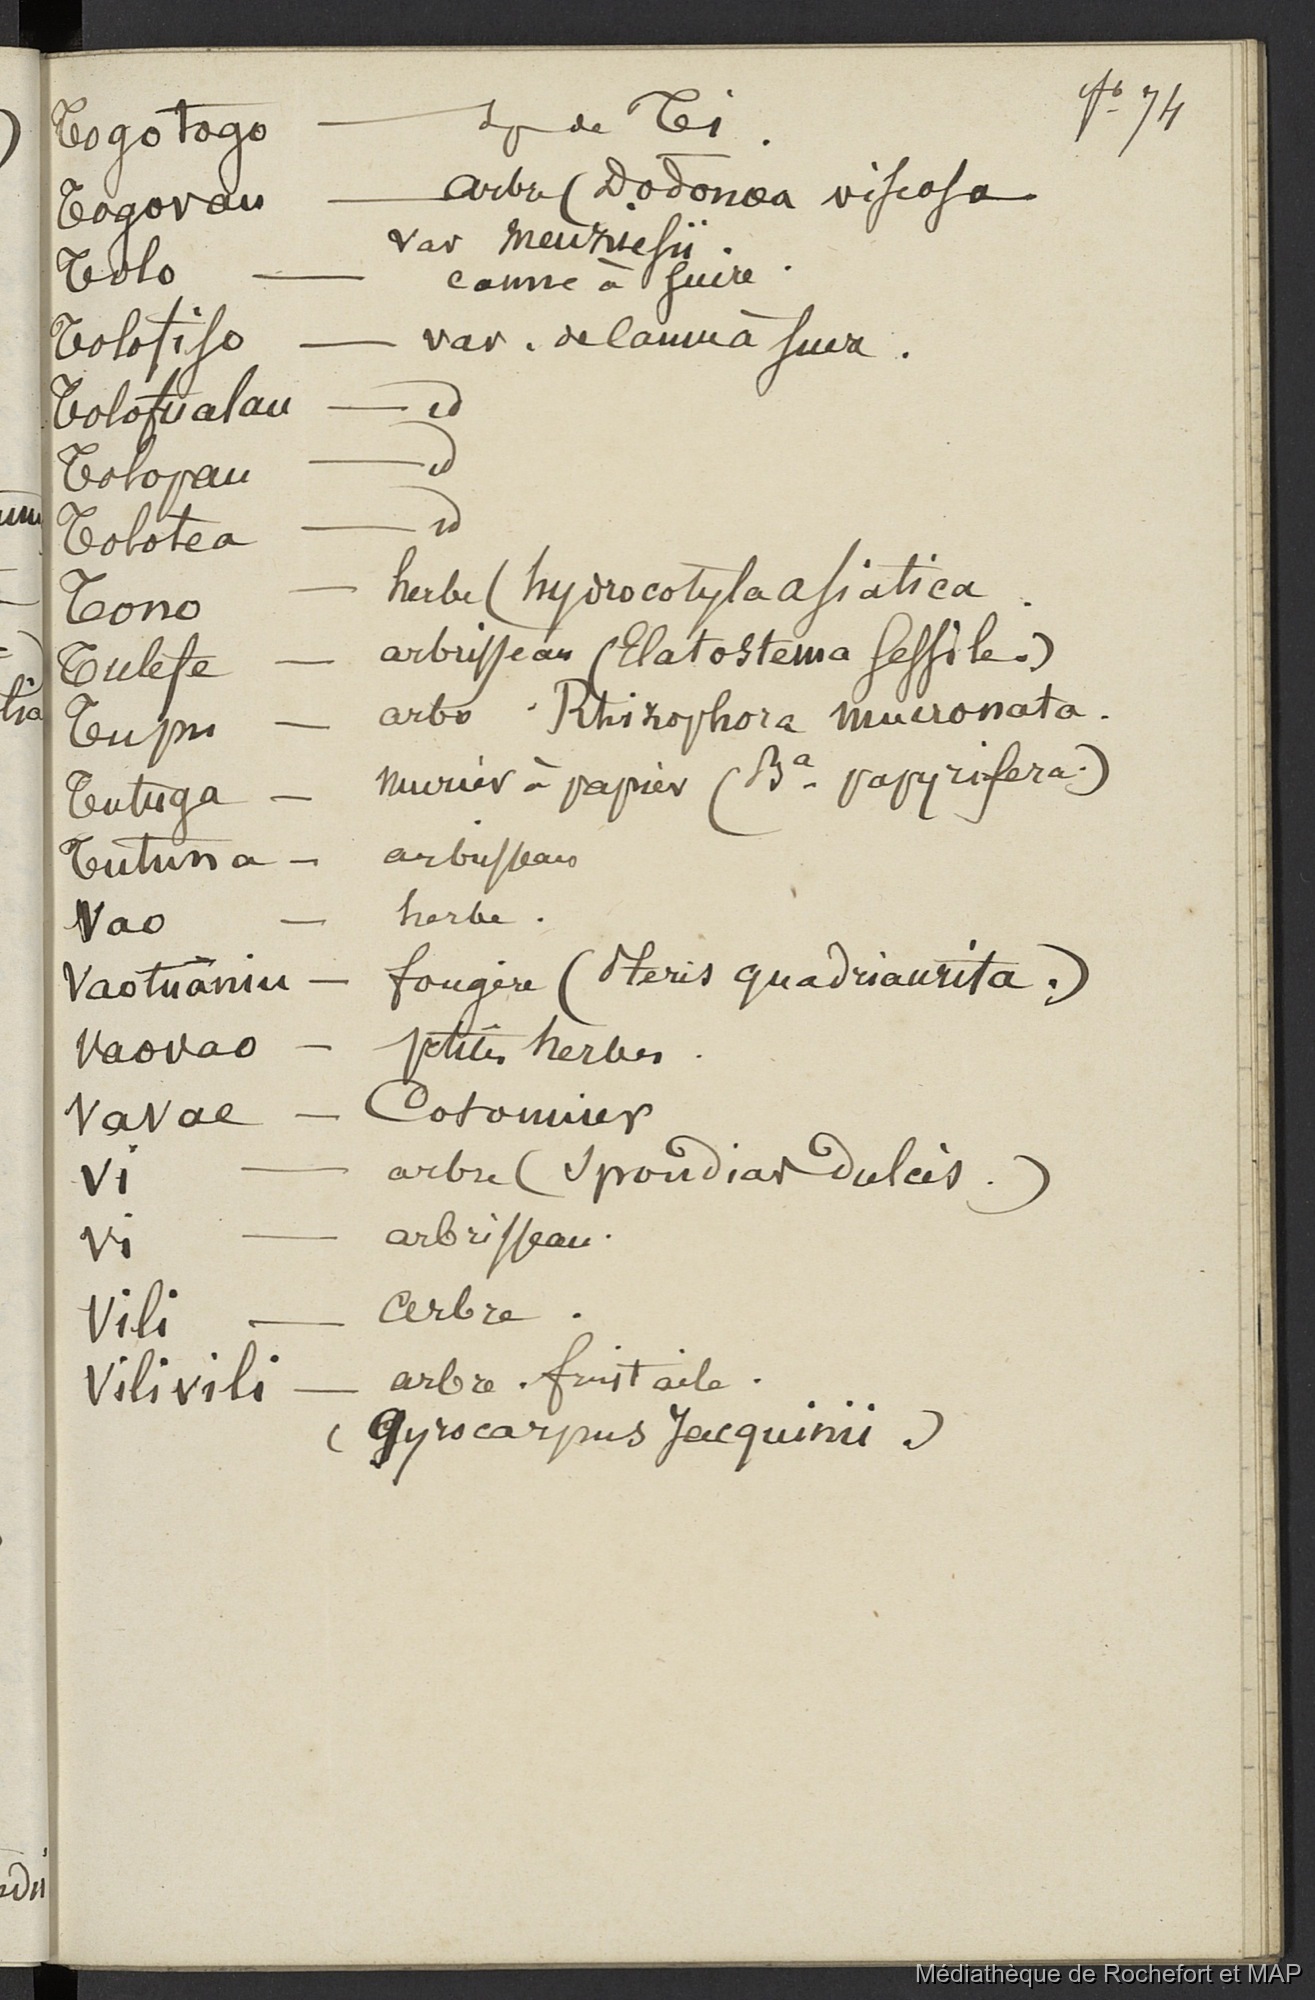 fo 74
Togotogo — sp de Ti.
Togovau — arbre ( Dodonœa viscosa
var menziesii.
Tolo — canne à sucre.
Tolofiso — var. de canne à sucre.
Tolofualau — id
Tolopau — id
Tolotea — id
Tono — herbe ( hydrocotyla asiatica.
Tulefe — arbrisseau (Elatostema sessile.)
Tupu — arbre Rhizophora mucronata.
Tutuga — murier à papier (Ba papyrifera.)
Tutuna — arbrisseau
Vao — herbe.
Vaotuaniu — fougère ( Pteris quadriaurita.)
Vaovao — petites herbes.
Vavae — Cotonnier
Vi — arbre ( Spondias Dulcis.)
Vi — arbrisseau.
Vili — arbre.
Vilivili — arbre. fruit aile.
( Gyrocarpus Jacquinii.)
Médiathèque de Rochefort et MAP